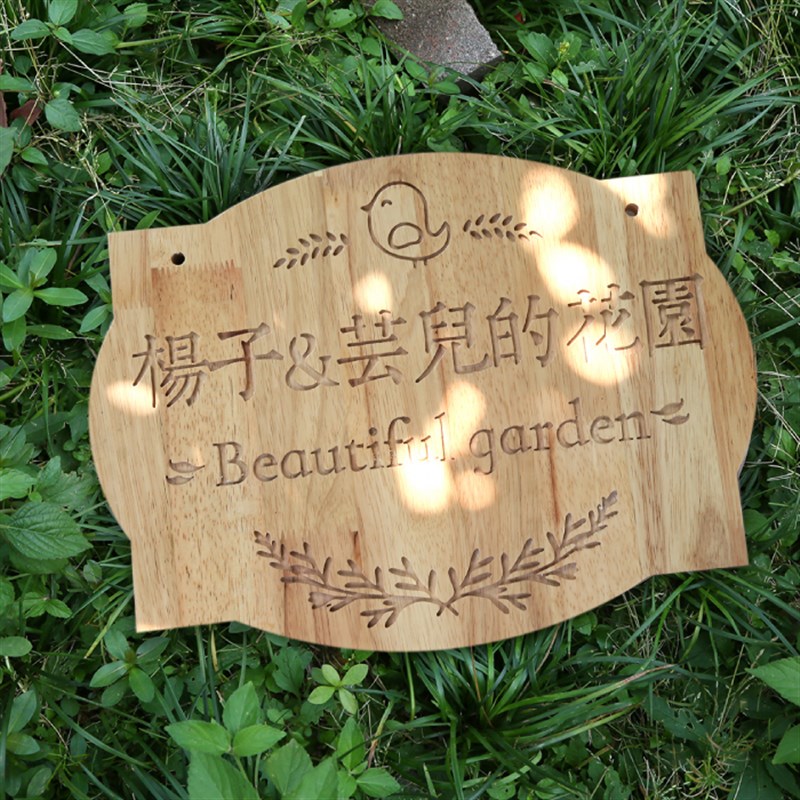 楊子&芸兒的花園
Beautiful garden